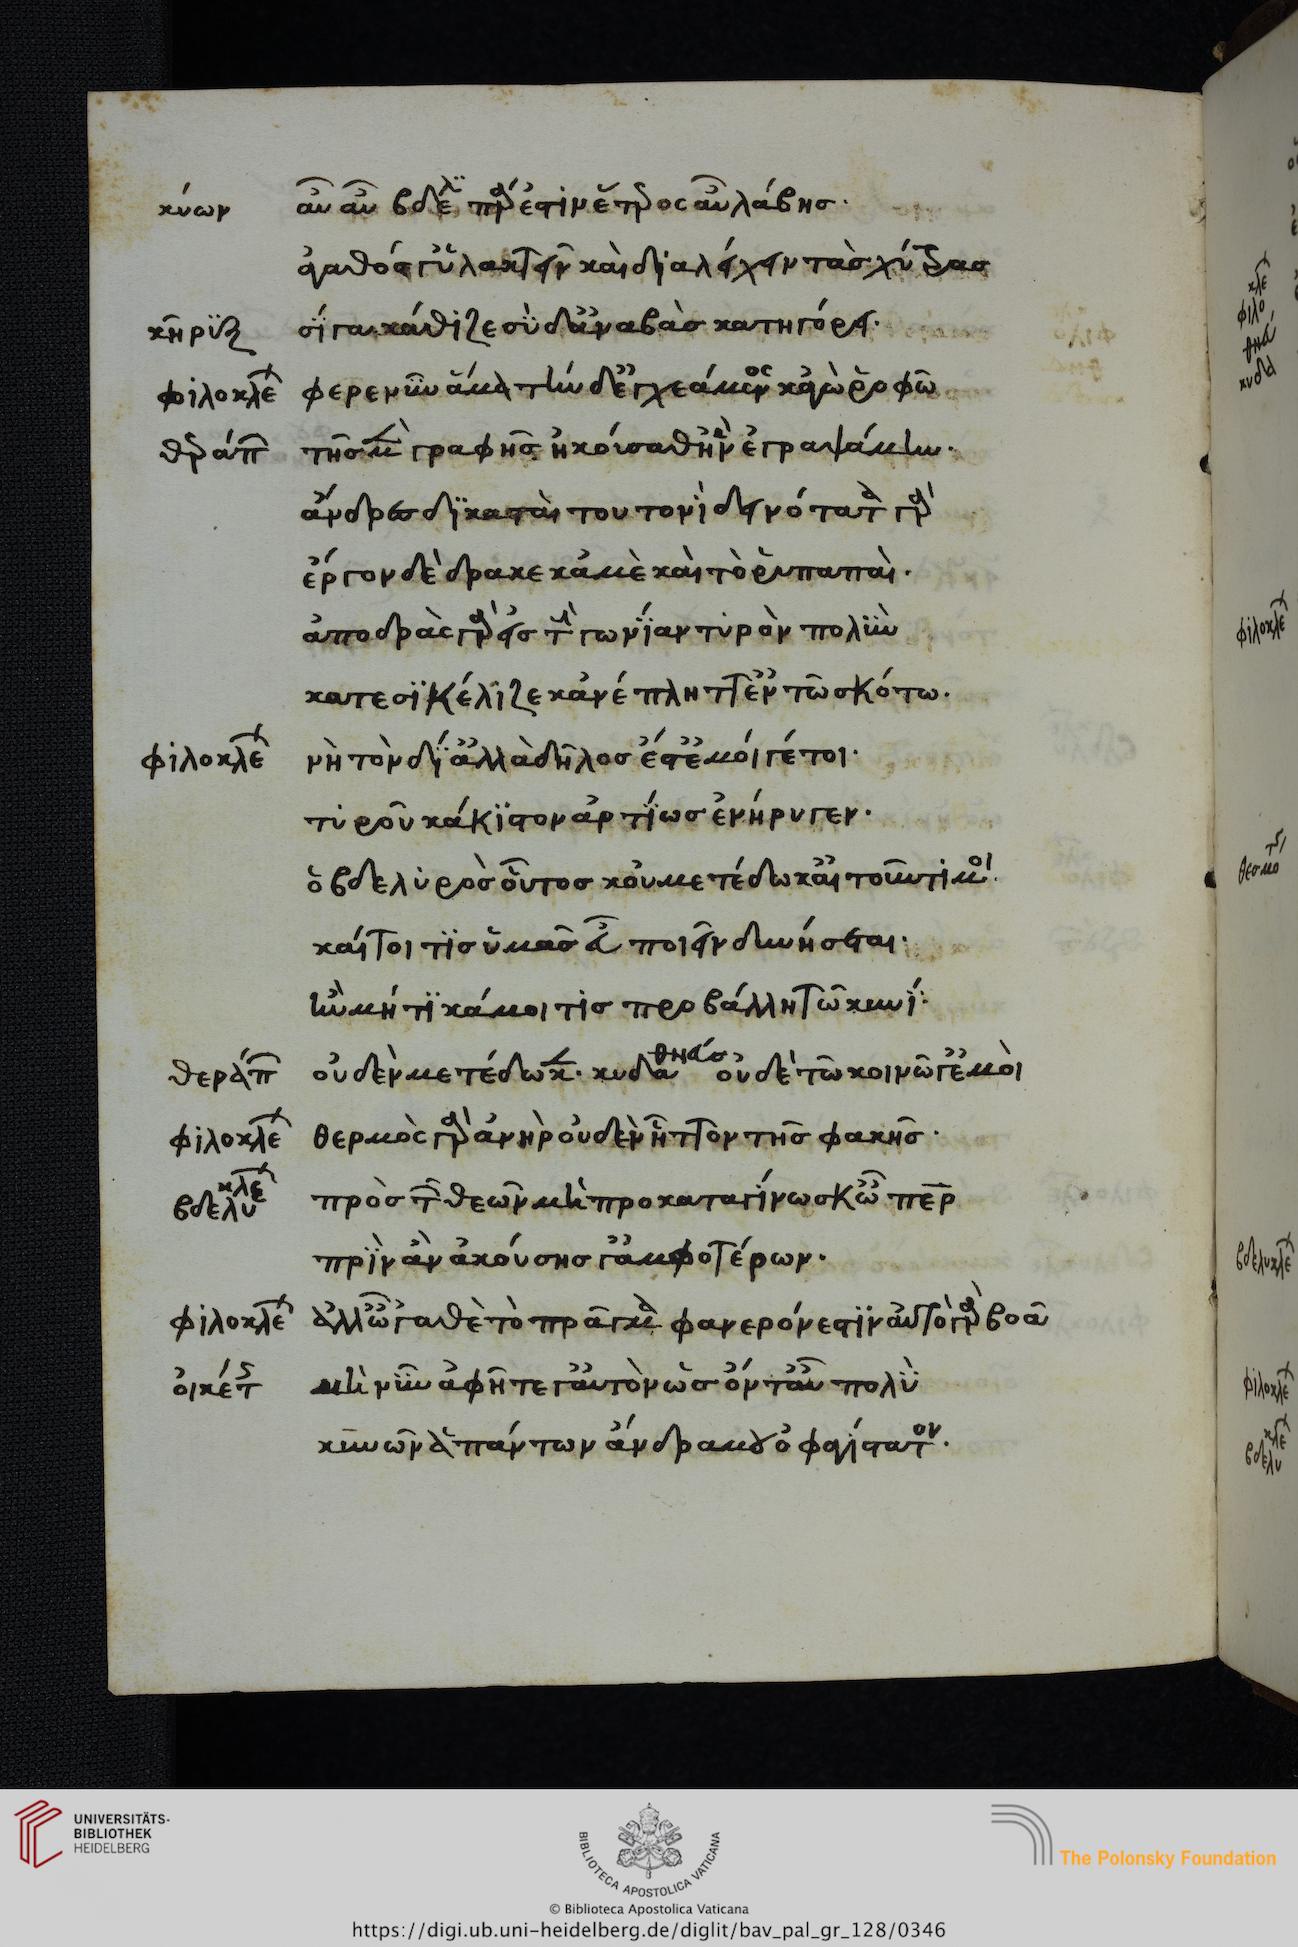 κύων αὖ αὖ βδελῠ́ πάρέστιν ἕτερος αὖ λάβης·
ἀγαθός γ' ὑλακτεῖν καὶ διαλείχειν τὰς χύτρας
κῆρυξ σίγα κάθιζε σὺ δ' ἀναβὰς κατηγόρει·
φιλοκλέ φέρε νῦν ἅμα τήνδ' ἐγχεάμενος κἀγὼ ῥοφῶ
θεράπ τῆς μὲν γραφῆς ἠκούσαθ' ἣν ἐγραψάμην·
ἄνδρες δικασταὶ τουτονὶ δεινότατα γὰρ
ἔργον δέδρακε κἀμὲ καὶ τὸ ῥυπαπαὶ·
ἀποδρὰς γὰρ εἰς τὴν γωνίαν τυρὸν πολὺν
κατεσικέλιζε κἀνέπλητ' ἐν τῶ σκότω·
φιλοκλέ νὴ τὸν δί' ἀλλὰ δῆλος ἔστ' ἐμοί γέ τοι·
τυροῦ κάκιστον ἀρτίως ἐνήρυγεν·
ὁ βδελυρὸς οὗτος κοὐ μετέδωκ' αἰτοῦντί μοι·
καίτοι τίς ὑμᾶς εὖ ποιεῖν δυνήσεται·
ἢν μή τι κἀμοί τις προβάλλη τῶ κυνί·
θεράπ οὐδὲν μετέδωκεν· κυδαθην οὐδὲ τῶ κοινῶ γ' ἐμοὶ
φιλοκλέ θερμὸς γὰρ ἁνὴρ οὐδὲν ἧττον τῆς φακῆς·
βδελυκλέ πρὸς τῶν θεῶν μὴ προκαταγίνωσκ' ὦ πάτερ
πρὶν ἂν ἀκούσης γ' ἀμφοτέρων·
φιλοκλέ ἀλλ' ὦγαθὲ τὸ πρᾶγμα φανερόν ἐστιν αὐτὸ γὰρ βοᾶ
οἰκέτ μὴ νῦν ἀφῆτε γ' αὐτὸν ὡς ὄντ' αὖ πολὺ
κυνῶν ἁπάντων ἄνδρα μονοφαγίστατον·
κλέ
φιλο
κυδα
φιλοκλέ
θεσμο
βδελυκλέ
φιλοκλέ
κλέ
βδελυ
UNIVERSITÄTS-
BIBLIOTHEK
HEIDELBERG
BIBLIOTECA APOSTOLICA VATICANA
The Polonsky Foundation
© Biblioteca Apostolica Vaticana
https://digi.ub.uni-heidelberg.de/diglit/bav_pal_gr_128/0346